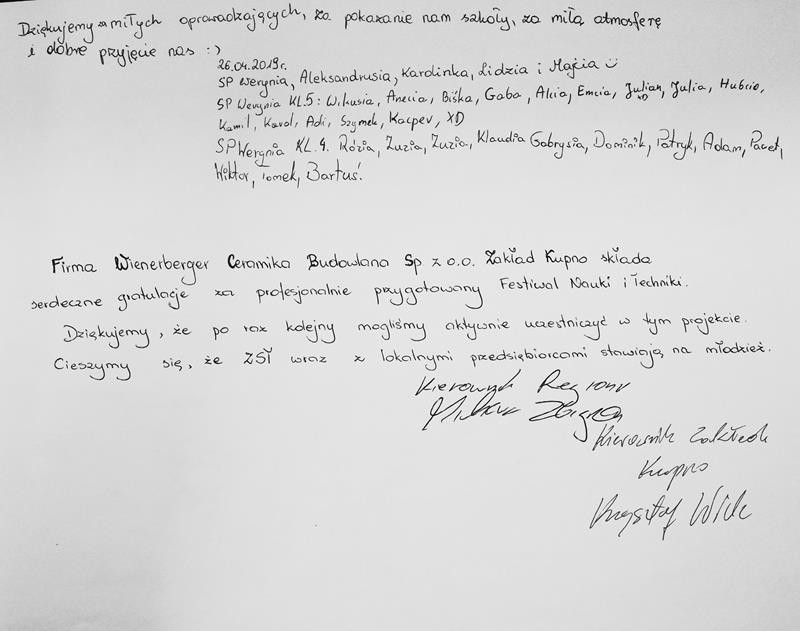 Dziękujemy za miłych oprowadzających, za pokazanie nam szkoły, za miłą atmosferę
i dobre przyjęcie nas :)
26.04.2019r.
SP Werynia, Aleksandrusia, Karolinka, Lidzia i Majcia
SP Werynia KL.5: Wikusia, Anecia, Biśka, Gaba, Alcia, Emcia, Julian, Julia, Hubcio,
XD
Kamil, Karol, Adi, Szymek, Kacper, XD
SP Werynia KL. 4. Rózia, Zuzia, Zuzia, Klaudia Gabrysia, Dominik, Patryk, Adam, Paweł,
Wiktor, Tomek, Bartuś.
Firma Wienerberger Ceramika Budowlana Sp z o.o. Zakład Kupno składa
serdeczne gratulacje za profesjonalnie przygotowany Festiwal Nauki i Techniki.
Dziękujemy, że po raz kolejny mogliśmy aktywnie uczestniczyć w tym projekcie.
Cieszymy się, że ZST wraz z lokalnymi przedsiębiorcami stawiają na młodzież.
Kierownik Regionu
Zbigniew
Kierownik Zakładu
Kupno
Krzysztof Wilk